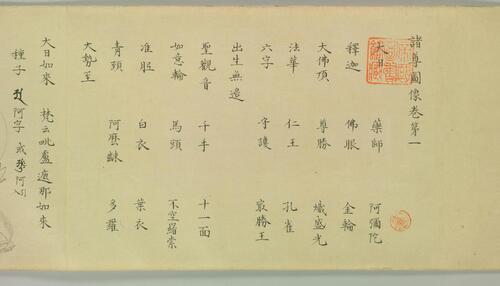 諸尊圖像卷第一
大日 藥師 阿彌陀
釋迦 佛眼 金輪
大佛頂 尊勝 熾盛光
法華 仁王 孔雀
六字 守護 最勝王
出生無邊
聖觀音 千手 十一面
如意輪 馬頭 不空羂索
准胝 白衣 葉衣
青頸 多羅
大勢至
大日如來 梵云毗盧遮那如來
種子 阿字 或 阿引